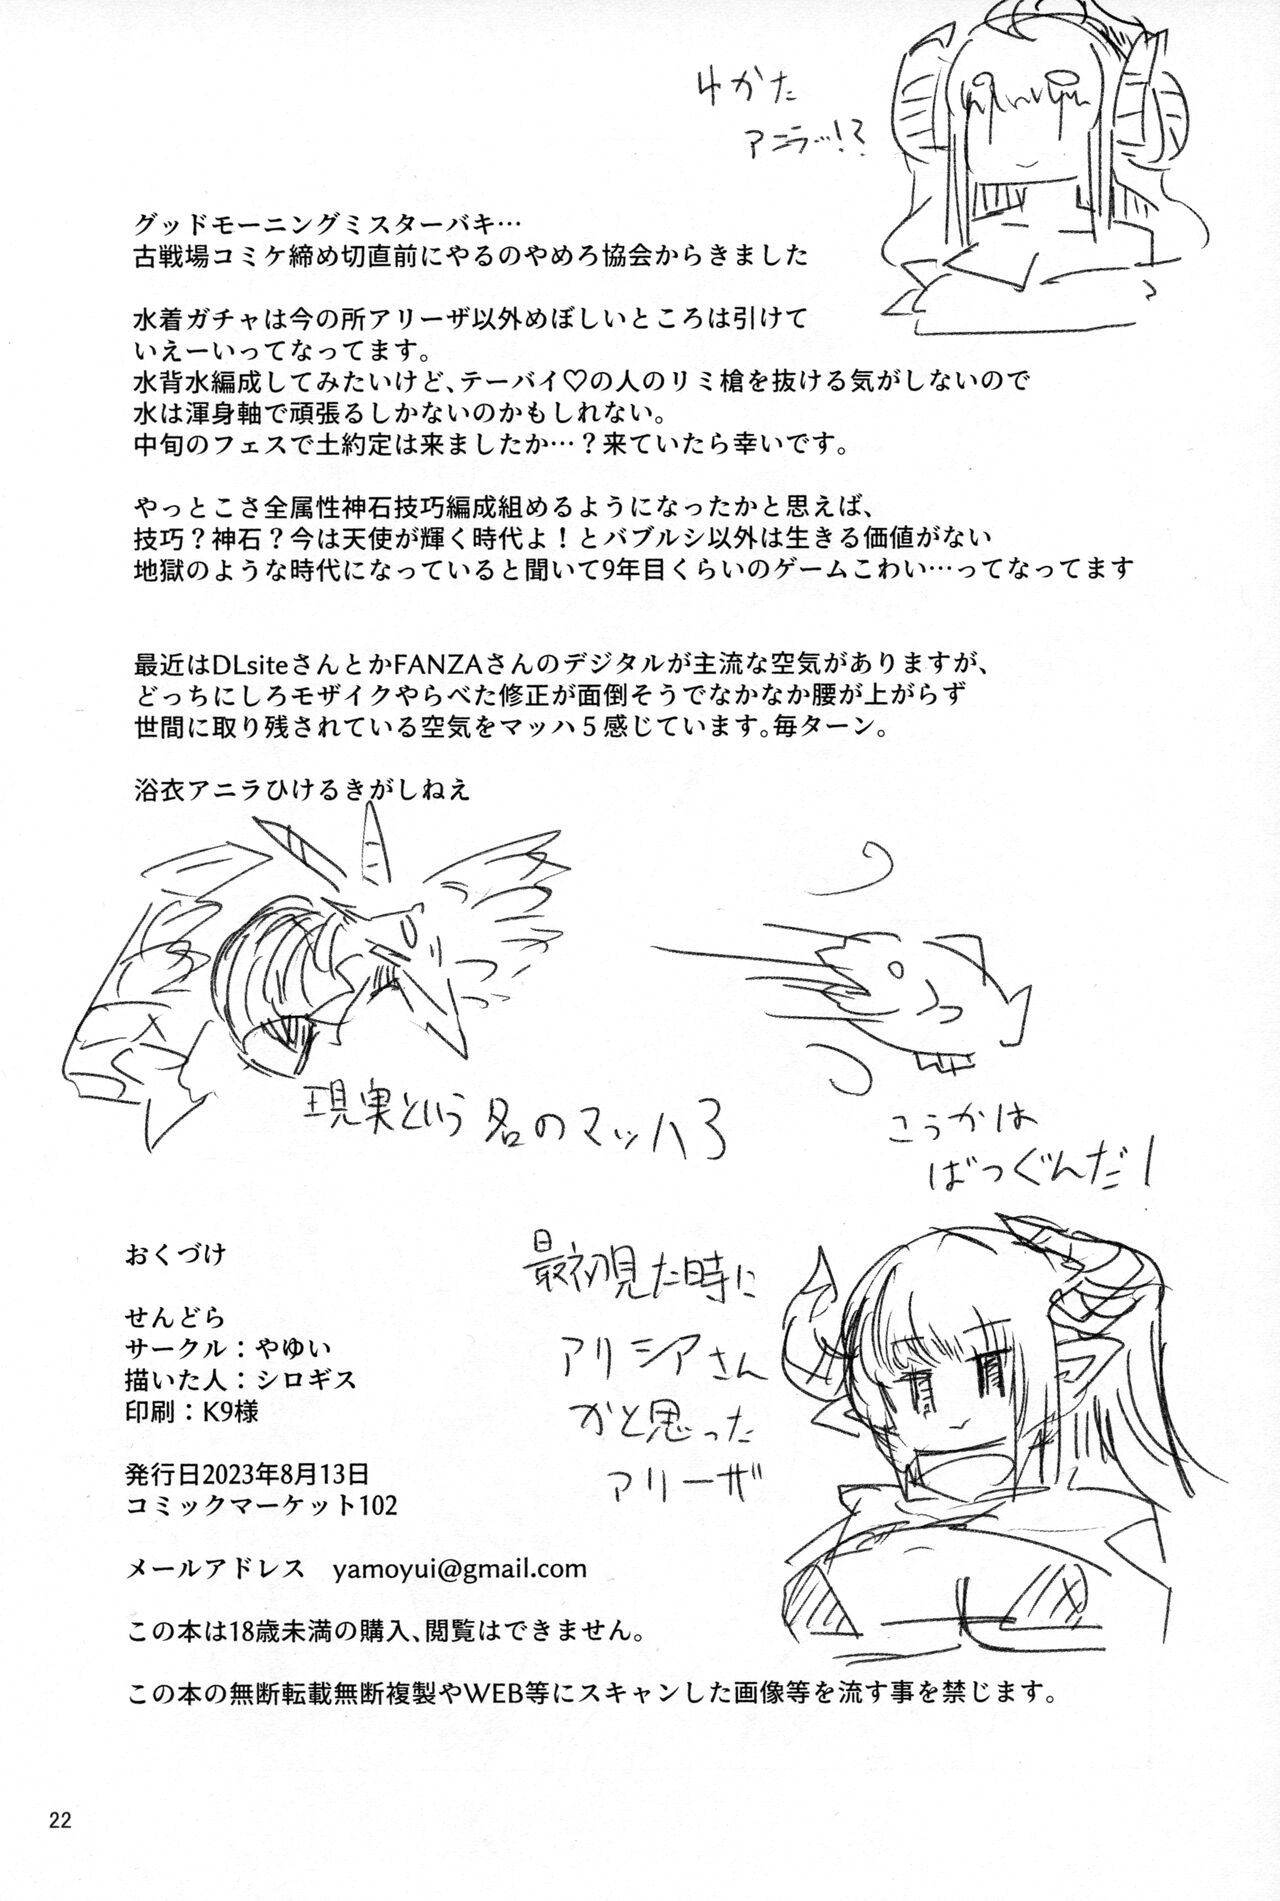 4かた
アニラッ!?
グッドモーニングミスターバキ…
古戦場コミケ締め切直前にやるのやめろ協会からきました
水着ガチャは今の所アリーザ以外めぼしいところは引けて
いえーいってなってます。
水背水編成してみたいけど、テーバイ♡の人のリミ槍を抜ける気がしないので
水は渾身軸で頑張るしかないのかもしれない。
中旬のフェスで土約定は来ましたか…？来ていたら幸いです。
やっとこさ全属性神石技巧編成組めるようになったかと思えば、
技巧？神石？今は天使が輝く時代よ！とバブルシ以外は生きる価値がない
地獄のような時代になっていると聞いて9年目くらいのゲームこわい…ってなってます
最近はDLsiteさんとかFANZAさんのデジタルが主流な空気がありますが、
どっちにしろモザイクやらべた修正が面倒そうでなかなか腰が上がらず
世間に取り残されている空気をマッハ５感じています。毎ターン。
浴衣アニラひけるきがしねえ
現実という名のマッハ3
こうかは
ばつぐんだ！
最初見た時に
アリシアさん
かと思った
アリーザ
おくづけ
せんどら
サークル：やゆい
描いた人：シロギス
印刷：K9様
発行日2023年8月13日
コミックマーケット102
メールアドレス　yamoyui@gmail.com
この本は18歳未満の購入、閲覧はできません。
この本の無断転載無断複製やWEB等にスキャンした画像等を流す事を禁じます。
22